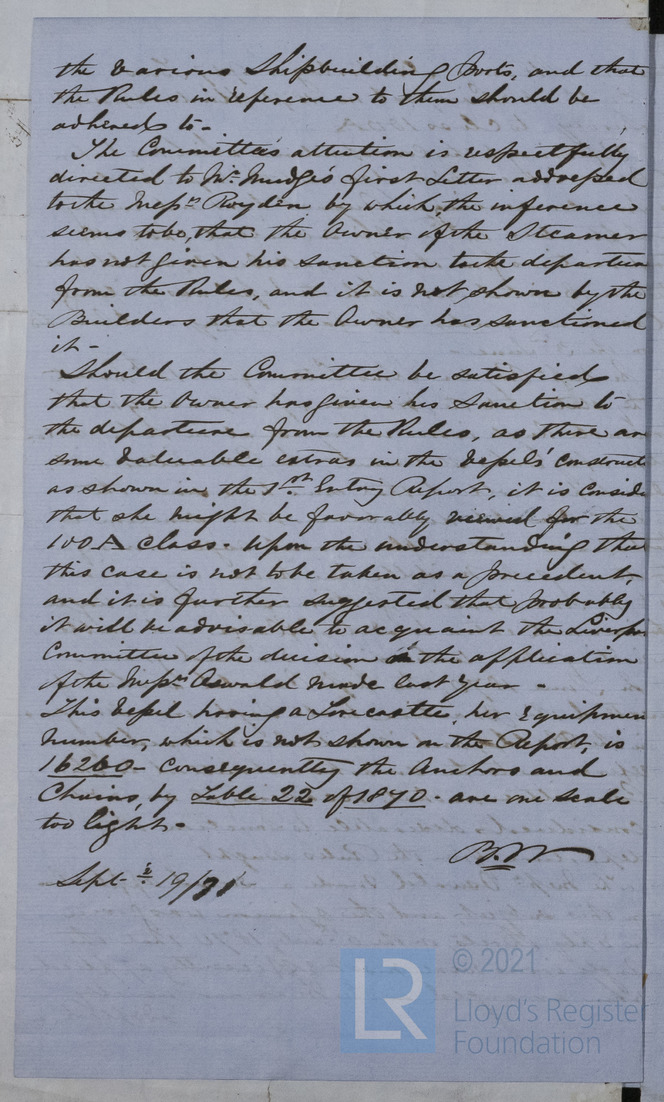 the various Shipbuilding Ports, and that
the Rules in reference to them should be
adhered to -
The Committee's attention is respectfully
directed to Mr Mudge's first Letter addressed
to the Messrs Royden by which, the inference
seems to be, that the Owner of the Steamer
has not given his sanction to the departure
from the Rules, and it is not shown by the
Builders that the Owner has sanctioned
it -
Should the Committee be satisfied
that the Owner has given his Sanction to
the departure from the Rules, as there are
some valuable extras in the Vessel's Construct
as shown in the 1st Entry Report, it is conside
that she might be favorably viewed for the
100A class - upon the understanding that
this case is not to be taken as a precedent,
and it is further suggested that probably
it will be advisable to acquaint the Liverpo
Committee of the decision in the application
of the Messrs Oswald made last year -
This Vessel having a Forecastle, her Equipmen
number, which is not shown on the Report, is
16260 - consequently the Anchors and
Chains, by Table 22 of 1870 - are one scale
too light -
B.W
Sept. 19/71
LR
© 2021
Lloyd's Register
Foundation